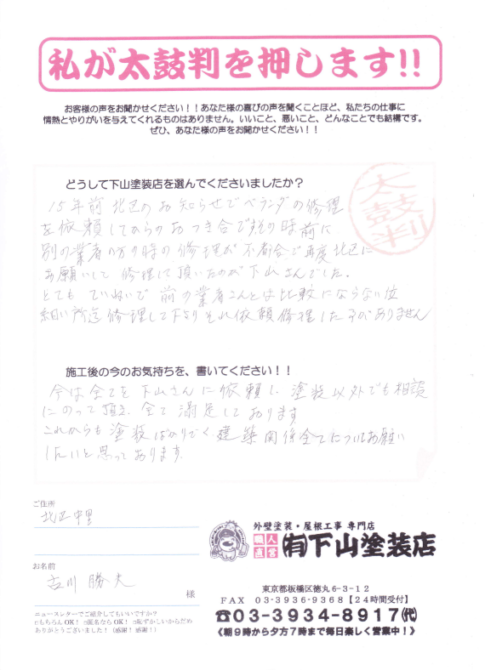 私が太鼓判を押します!!
お客様の声をお聞かせください!!あなた様の喜びの声を聞くことほど、私たちの仕事に
情熱とやりがいを与えてくれるものはありません。いいこと、悪いこと、どんなことでも結構です。
ぜひ、あなた様の声をお聞かせください!!
どうして下山塗装店を選んでくださいましたか?
太鼓判
15年前北区のお知らせでベランダの修理
を依頼してからのおつき合ですその時前に
別の業者の方の時の修理が不都合で再度北区に
お願いして修理に頂いたのが下山さんでした。
とてもていねいで前の業者さんとは比較にならない位
細い所迄修理して下さりそれ依頼修理した事がありません
施工後の今のお気持ちを、書いてください!!
今は全てを下山さんに依頼し、塗装以外でも相談
にのって頂き、全て満足しております
これからも塗装ばかりでく建築関係全てについてお願い
したいと思っております。
ご住所
北区中里
お名前
吉川 勝夫
様
ニュースレターでご紹介してもいいですか?
もちろんOK! 匿名ならOK! 恥ずかしいからだめ
ありがとうございました!(感謝!感謝!)
外壁塗装・屋根工事 専門店
職人直営
(有)下山塗装店
東京都板橋区徳丸6-3-12
FAX 03-3936-9368【24時間受付】
☎03-3934-8917(代)
《朝9時から夕方7時まで毎日楽しく営業中!》